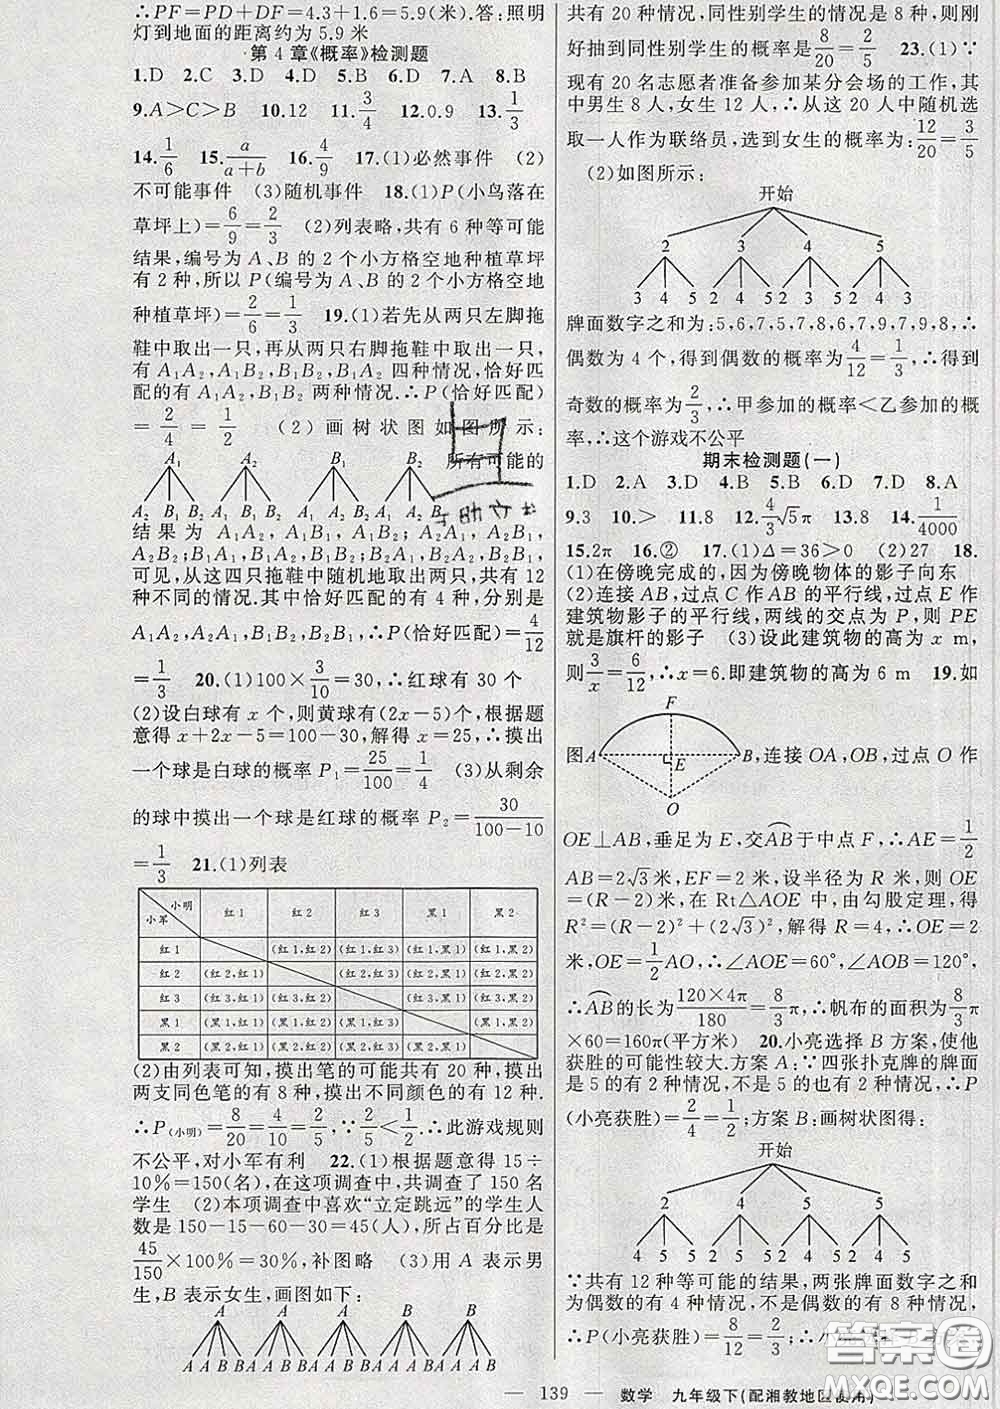 ∴PF=PD+DF=4.3+1.6=5.9(米).答:照明
灯到地面的距离约为 5.9 米
第 4 章《概率》检测题
1.D 2.C 3.D 4.D 5.B 6.D 7.A 8.B
9.A>C>B 10.12 11.3/4 12.0.9 13.1/3
14.1/6 15.a/(a+b) 16.4/9 17.(1)必然事件 (2)
不可能事件 (3)随机事件 18.(1)P(小鸟落在
草坪上)=6/9=2/3 (2)列表略,共有 6 种等可能
结果,编号为 A、B 的 2 个小方格空地种植草坪
有 2 种,所以 P(编号为 A、B 的 2 个小方格空地
种植草坪)=2/6=1/3 19.(1)若先从两只左脚拖
鞋中取出一只,再从两只右脚拖鞋中取出一只,
有 A₁A₂,A₁B₂,B₁B₂,B₁A₂ 四种情况,恰好匹
配的有 A₁A₂,B₁B₂ 两种情况.∴P(恰好匹配)
=2/4=1/2 (2)画树状图如图所示:
A₁ A₂ B₁ B₂ 所有可能的
A₂ B₁ B₂ A₁ B₁ B₂ A₁ A₂ B₂ A₁ A₂ B₁
结果为 A₁A₂,A₁B₁,A₁B₂;A₂A₁,A₂B₁,
A₂B₂;B₁A₁,B₁A₂,B₁B₂;B₂A₁,B₂A₂,B₂B₁,
可见,从这四只拖鞋中随机地取出两只,共有 12
种不同的情况.其中恰好匹配的有 4 种,分别是
A₁A₂,A₂A₁,B₁B₂,B₂B₁,∴P(恰好匹配)=4/12
=1/3 20.(1)100×3/10=30,∴红球有 30 个
(2)设白球有 x 个,则黄球有(2x-5)个,根据题
意得 x+2x-5=100-30,解得 x=25,∴摸出
一个球是白球的概率 P₁=25/100=1/4 (3)从剩余
的球中摸出一个球是红球的概率 P₂=30/(100-10)
=1/3 21.(1)列表
小明 小军 红 1 红 2 红 3 黑 1 黑 2
红 1 (红 1,红 2) (红 1,红 3) (红 1,黑 1) (红 1,黑 2)
红 2 (红 2,红 1) (红 2,红 3) (红 2,黑 1) (红 2,黑 2)
红 3 (红 3,红 1) (红 3,红 2) (红 3,黑 1) (红 3,黑 2)
黑 1 (黑 1,红 1) (黑 1,红 2) (黑 1,红 3) (黑 1,黑 2)
黑 2 (黑 2,红 1) (黑 2,红 2) (黑 2,红 3) (黑 2,黑 1)
(2)由列表可知,摸出笔的可能共有 20 种,摸出
两支同色笔的有 8 种,摸出不同颜色的有 12 种.
∴P(小明)=8/20=4/10=2/5,∵2/5<1/2,∴此游戏规则
不公平,对小军有利 22.(1)根据题意得 15÷
10%=150(名),在这项调查中,共调查了 150 名
学生 (2)本项调查中喜欢“立定跳远”的学生人
数是 150-15-60-30=45(人),所占百分比是
45/150×100%=30%,补图略 (3)用 A 表示男
生,B 表示女生,画图如下:
A A A B B
A A B B A A B B A A B B A A A B A A A B
共有 20 种情况,同性别学生的情况是 8 种,则刚
好抽到同性别学生的概率是8/20=2/5 23.(1)∵
现有 20 名志愿者准备参加某分会场的工作,其
中男生 8 人,女生 12 人,∴从这 20 人中随机选
取一人作为联络员,选到女生的概率为:12/20=3/5
(2)如图所示:
开始
2 3 4 5
3 4 5 2 4 5 2 3 5 2 4 3
牌面数字之和为:5,6,7,5,7,8,6,7,9,7,9,8,∴
偶数为 4 个,得到偶数的概率为4/12=1/3,∴得到
奇数的概率为2/3,∴甲参加的概率<乙参加的概
率,∴这个游戏不公平
期末检测题(一)
1.D 2.A 3.D 4.B 5.B 6.D 7.D 8.A
9.3 10.> 11.8 12.4/3√5π 13.8 14.1/4000
15.2π 16.② 17.(1)Δ=36>0 (2)27 18.
(1)在傍晚完成的,因为傍晚物体的影子向东
(2)连接 AB,过点 C 作 AB 的平行线,过点 E 作
建筑物影子的平行线,两线的交点为 P,则 PE
就是旗杆的影子 (3)设此建筑物的高为 x m,
则3/x=6/12,∴x=6.即建筑物的高为 6 m 19.如
F
图A E B,连接 OA,OB,过点 O 作
O
OE⊥AB,垂足为 E,交AB于中点 F,∴AE=1/2
AB=2√3 米,EF=2 米,设半径为 R 米,则 OE
=(R-2)米,在 Rt△AOE 中,由勾股定理,得
R²=(R-2)²+(2√3)².解得 R=4,∴OE=2
米,OE=1/2AO,∴∠AOE=60°,∠AOB=120°,
∴AB的长为120×4π/180=8/3π,∴帆布的面积为8/3π
×60=160π(平方米) 20.小亮选择 B 方案,使他
获胜的可能性较大.方案 A:∵四张扑克牌的牌面
是 5 的有 2 种情况,不是 5 的也有 2 种情况,∴P
(小亮获胜)=2/4=1/2;方案B:画树状图得:
开始
2 4 5 5
4 5 5 2 5 5 2 4 5 2 4 5
∵共有 12 种等可能的结果,两张牌面数字之和
为偶数的有 4 种情况,不是偶数的有 8 种情况,
∴P(小亮获胜)=8/12=2/3;∴小亮
— 139 — 数学 九年级下(配湘教地区使用)
答案卷